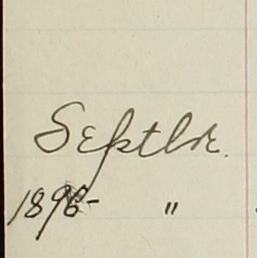 Septbr.
1896- "